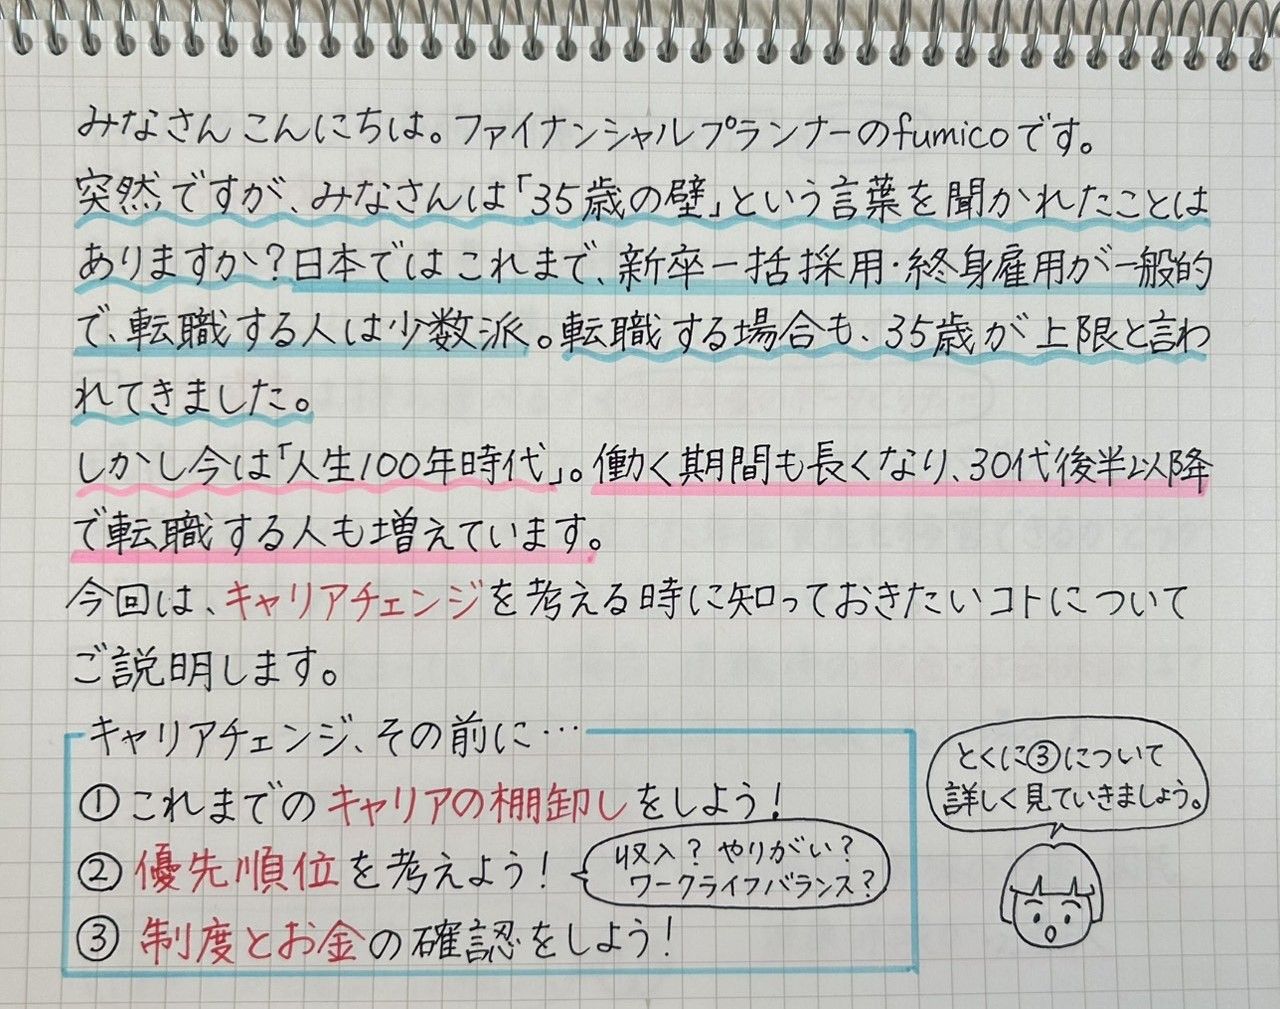 みなさんこんにちは。ファイナンシャルプランナーのfumicoです。
突然ですが、みなさんは「35歳の壁」という言葉を聞かれたことは
ありますか?日本ではこれまで、新卒一括採用・終身雇用が一般的
で、転職する人は少数派。転職する場合も、35歳が上限と言わ
れてきました。
しかし今は「人生100年時代」。働く期間も長くなり、30代後半以降
で転職する人も増えています。
今回は、キャリアチェンジを考える時に知っておきたいコトについて
ご説明します。
キャリアチェンジ、その前に…
①これまでのキャリアの棚卸しをしよう!
②優先順位を考えよう!
収入?やりがい?
ワークライフバランス?
③制度とお金の確認をしよう!
とくに③について
詳しく見ていきましょう。